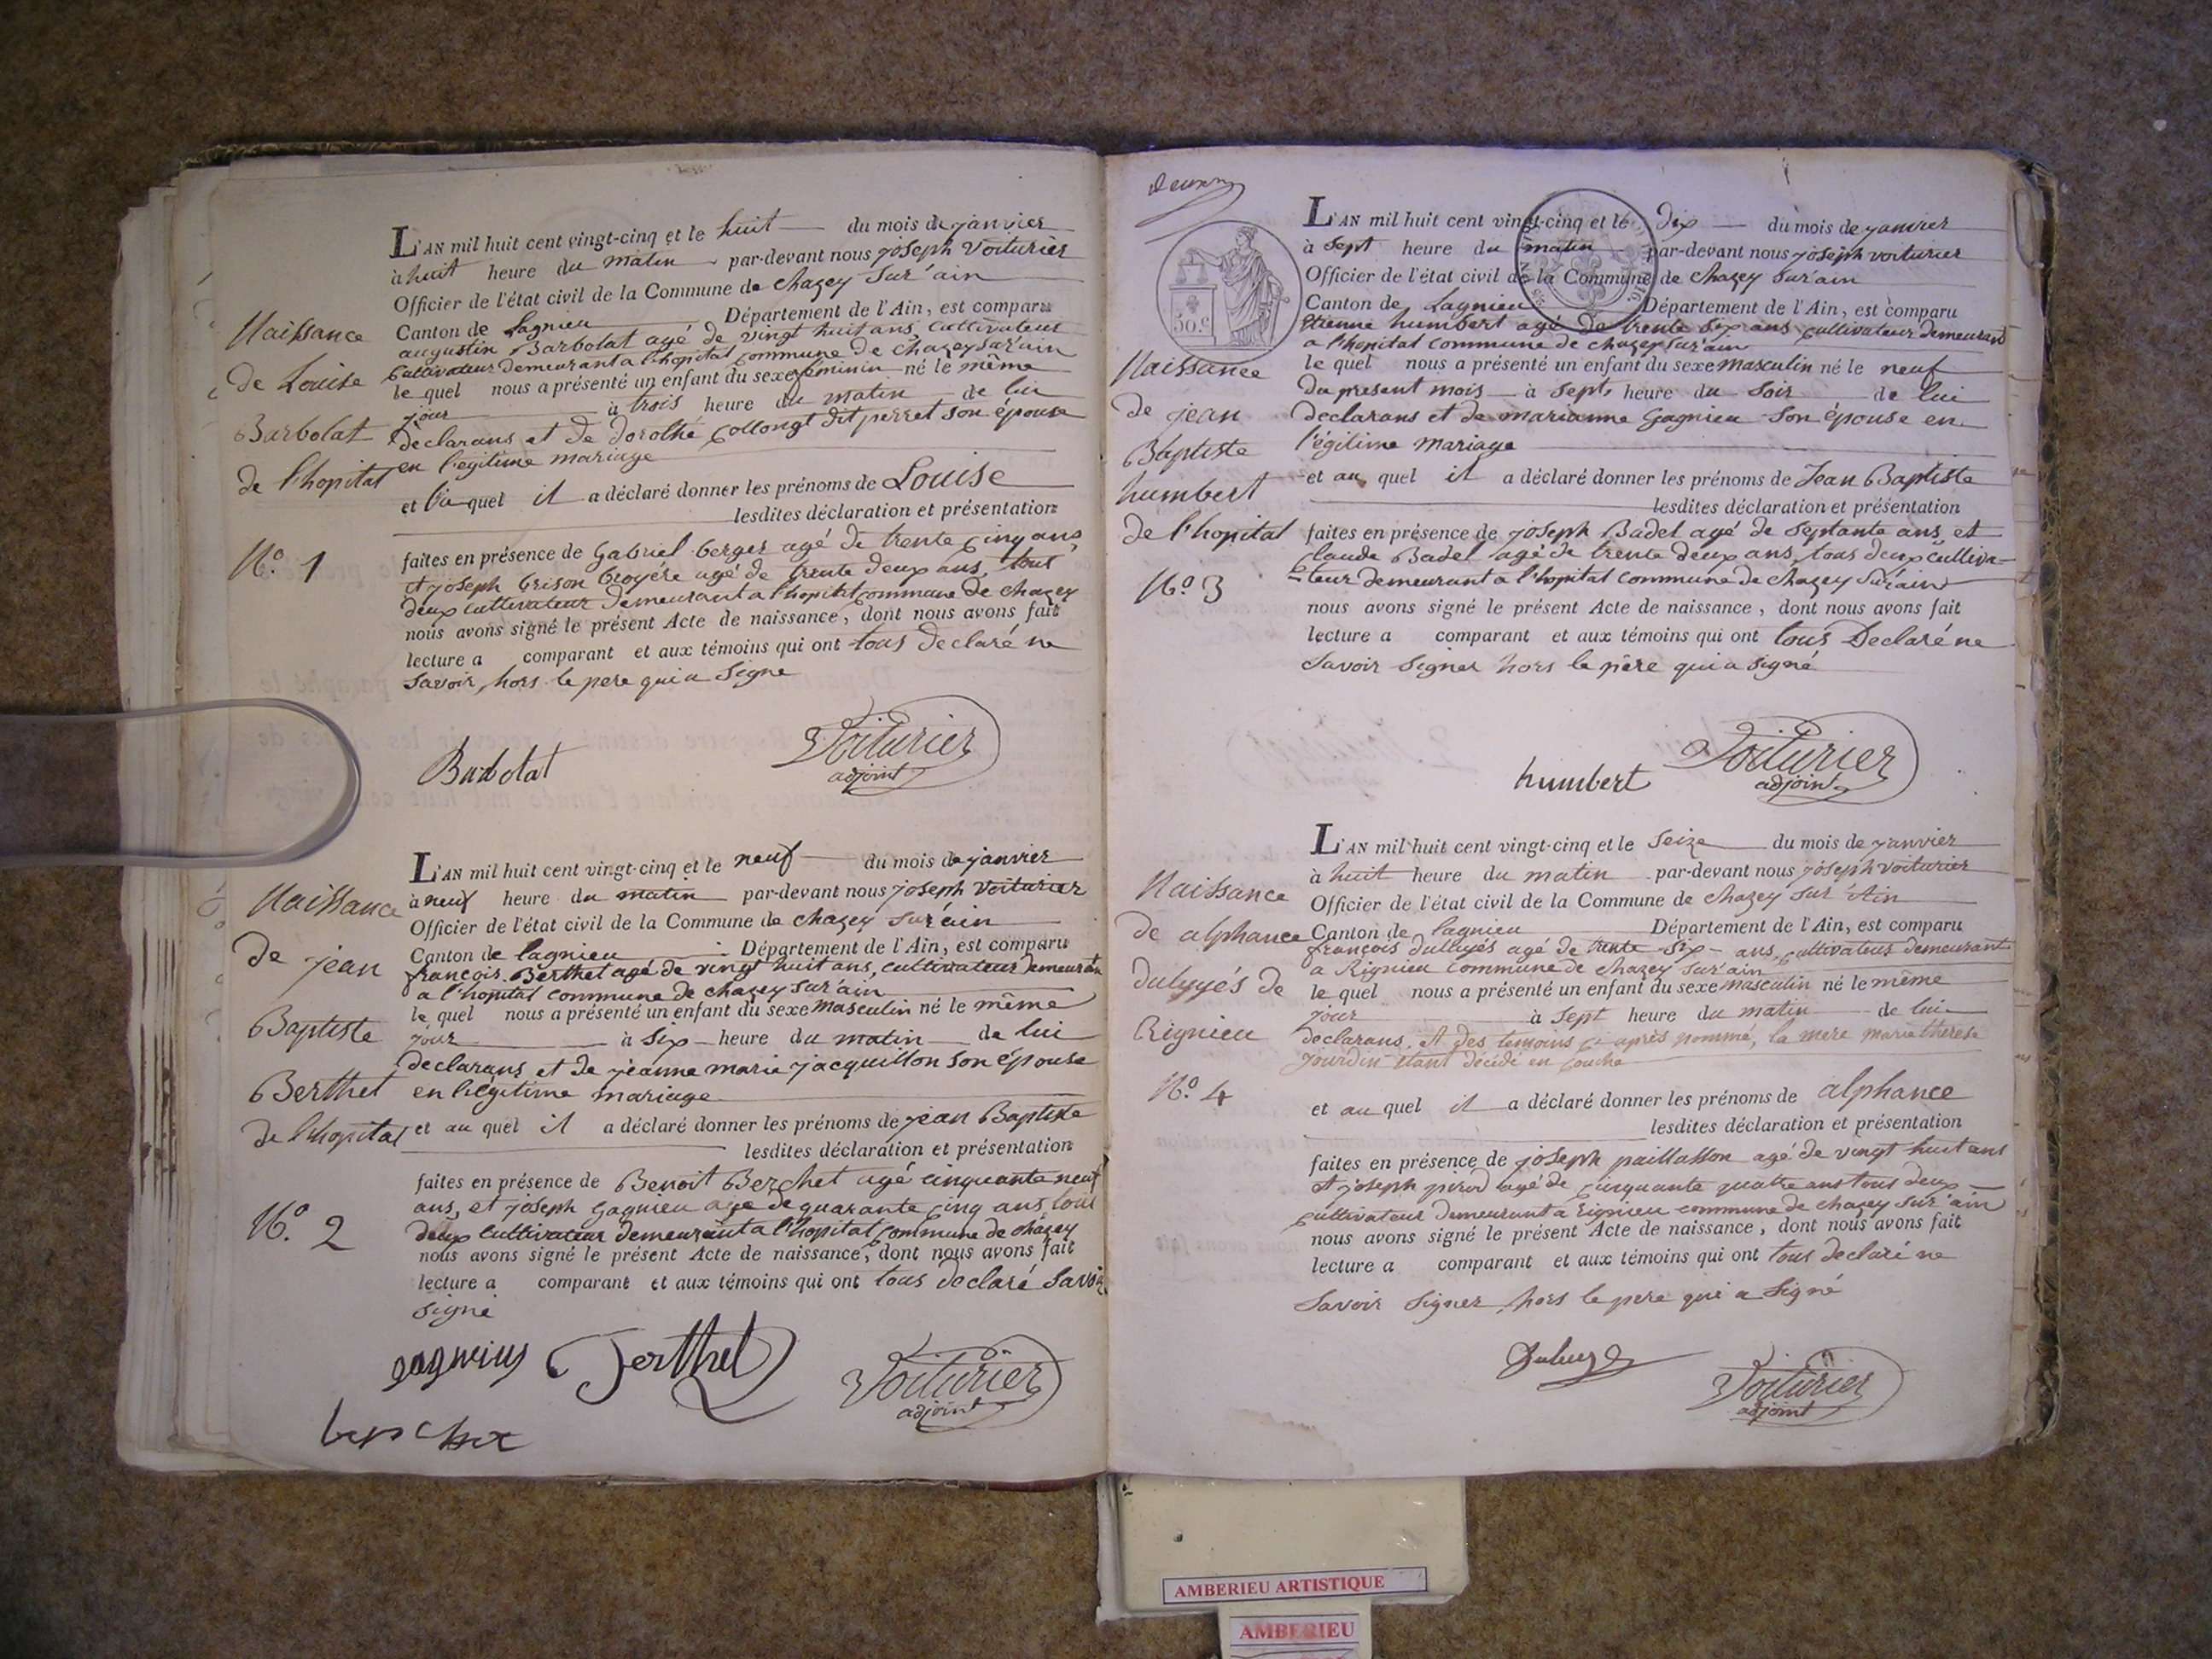 Naissance
de Louise
Barbolat
de l'hopital
N.º 1
L'AN mil huit cent vingt-cinq et le huit du mois de janvier
à huit heure du matin par-devant nous joseph Voiturier
Officier de l'état civil de la Commune de chazey Sur'ain
Canton de Lagnieu Département de l'Ain, est comparu
augustin Barbolat agé de vingt huit ans, Cultivateur
Cultivateur demeurant a l'hopital commune de Chazey Sur'ain
le quel nous a présenté un enfant du sexe feminin né le même
jour à trois heure du matin de lui
declarans et de dorothé Collongt dit perret son épouse
en l'egitime mariage
et quel il a déclaré donner les prénoms de Louise
lesdites déclaration et présentation
faites en présence de Gabriel berger agé de trente cinq ans,
et joseph brison broyére agé de trente deux ans, tous
deux cultivateur demeurant a l'hopital commune de chazey
nous avons signé le présent Acte de naissance, dont nous avons fait
lecture a comparant et aux témoins qui ont tous declaré ne
Savoir, hors le pere qui a Signe
Barbolat
Voiturier
adjoint
Naissance
de jean
Baptiste
Berthet
de l'hopital
N.º 2
L'AN mil huit cent vingt-cinq et le neuf du mois de janvier
à neuf heure du matin par-devant nous joseph Voiturier
Officier de l'état civil de la Commune de chazey Sur'ain
Canton de lagnieu Département de l'Ain, est comparu
françois Berthet agé de vingt huit ans, cultivateur demeurant
a l'hopital commune de chazey Sur'ain
le quel nous a présenté un enfant du sexe Masculin né le même
jour à Six heure du matin de lui
declarans et de jeanne marie jacquillon son épouse
en l'égitime mariage
et au quel il a déclaré donner les prénoms de jean Baptiste
lesdites déclaration et présentation
faites en présence de Benoit Berchet agé cinquante neuf
ans, et joseph Gagnieu agé de quarante cinq ans, tous
deux Cultivateur demeurant a l'hopital Commune de chazey
nous avons signé le présent Acte de naissance, dont nous avons fait
lecture a comparant et aux témoins qui ont tous declaré Savoir
Signé
gagnieus Berthet Voiturier
adjoint
berchet
deux
50.c
Naissance
de jean
Baptiste
humbert
de l'hopital
N.º 3
L'AN mil huit cent vingt-cinq et le dix du mois de janvier
à Sept heure du matin par-devant nous joseph voiturier
Officier de l'état civil de la Commune de chazey Sur'ain
Canton de Lagnieu Département de l'Ain, est comparu
Etienne humbert agé de trente Six ans cultivateur demeurant
a l'hopital commune de chazey Sur'ain
le quel nous a présenté un enfant du sexe Masculin né le neuf
du present mois à Sept heure du Soir de lui
declarans et de marianne Gagnieu Son épouse en
l'égitime Mariage
et au quel il a déclaré donner les prénoms de Jean Baptiste
lesdites déclaration et présentation
faites en présence de joseph Badel agé de Septante ans, et
claude Badel agé de trente deux ans, tous deux cultiva-
-teur demeurant a l'hopital commune de chazey Sur'ain
nous avons signé le présent Acte de naissance, dont nous avons fait
lecture a comparant et aux témoins qui ont tous Declaré ne
Savoir Signer hors le père qui a signé
humbert
Voiturier
adjoint
Naissance
de alphance
duluyés de
Rignieu
N.º 4
L'AN mil huit cent vingt-cinq et le Seize du mois de janvier
à huit heure du matin par-devant nous joseph voiturier
Officier de l'état civil de la Commune de chazey Sur'Ain
Canton de lagnieu Département de l'Ain, est comparu
françois duluyés agé de trente Six ans, cultivateur demeurant
a Rignieu commune de chazey Sur'ain
le quel nous a présenté un enfant du sexe masculin né le même
jour à Sept heure du matin de lui
declarans, et des temoins ci après nommé, la mere marie therese
jourdin etant décédé en couche
et au quel il a déclaré donner les prénoms de alphance
lesdites déclaration et présentation
faites en présence de joseph paillasson agé de vingt huit ans
et joseph pirod agé de cinquante quatre ans tous deux
cultivateur demeurant a Rignieu commune de chazey Sur'ain
nous avons signé le présent Acte de naissance, dont nous avons fait
lecture a comparant et aux témoins qui ont tous declaré ne
Savoir Signer, hors le pere qui a Signé
Voiturier
adjoint
AMBERIEU ARTISTIQUE
AMBERIEU